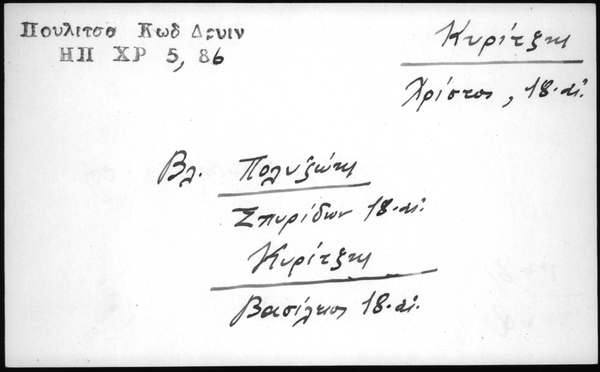 Πουλιτσα Κωδ Δρυιν
ΗΠ ΧΡ 5, 86
Κυρίτζη
Χρίστος, 18. αἰ.
Βλ. Πολυζώη
Σπυρίδων 18. αἰ.
Κυρίτζη
Βασίλειος 18. αἰ.